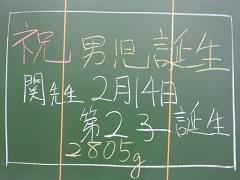 祝男児誕生
関先生 2月14日
第2子誕生
2805g